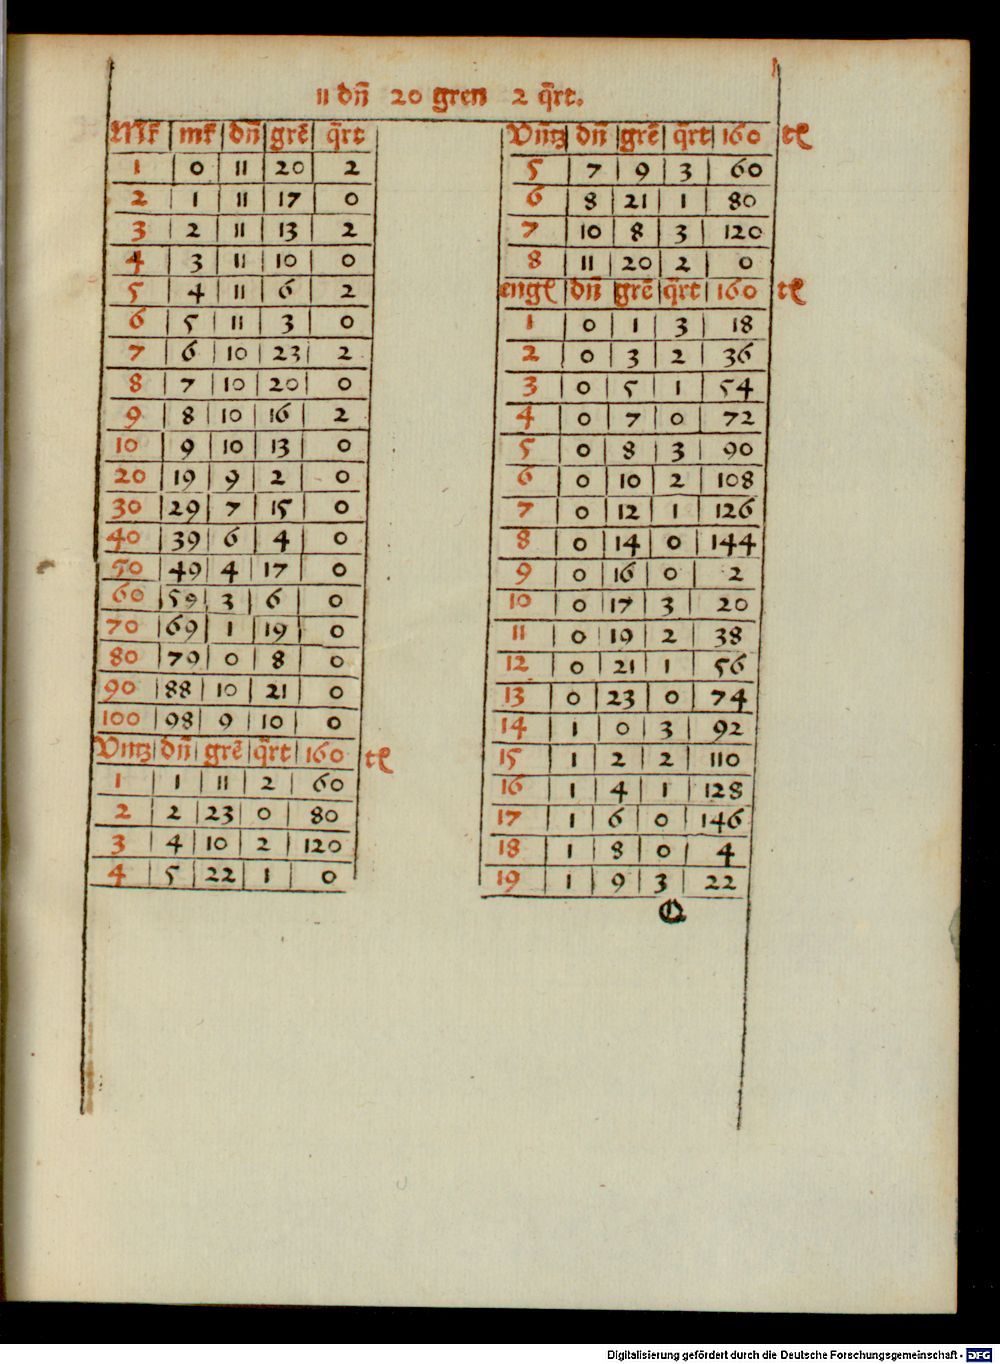 11 dn̄ 20 gren 2 q̄rt.
Mk̄ mk̄ dn̄ grē q̄rt
1 0 11 20 2
2 1 11 17 0
3 2 11 13 2
4 3 11 10 0
5 4 11 6 2
6 5 11 3 0
7 6 10 23 2
8 7 10 20 0
9 8 10 16 2
10 9 10 13 0
20 19 9 2 0
30 29 7 15 0
40 39 6 4 0
50 49 4 17 0
60 59 3 6 0
70 69 1 19 0
80 79 0 8 0
90 88 10 21 0
100 98 9 10 0
Vntz dn̄ grē q̄rt 160 tł
1 1 11 2 60
2 2 23 0 80
3 4 10 2 120
4 5 22 1 0
Vn̄tz dn̄ grē q̄rt 160 tł
5 7 9 3 60
6 8 21 1 80
7 10 8 3 120
8 11 20 2 0
engł dn̄ grē q̄rt 160 tł
1 0 1 3 18
2 0 3 2 36
3 0 5 1 54
4 0 7 0 72
5 0 8 3 90
6 0 10 2 108
7 0 12 1 126
8 0 14 0 144
9 0 16 0 2
10 0 17 3 20
11 0 19 2 38
12 0 21 1 56
13 0 23 0 74
14 1 0 3 92
15 1 2 2 110
16 1 4 1 128
17 1 6 0 146
18 1 8 0 4
19 1 9 3 22
Digitalisierung gefördert durch die Deutsche Forschungsgemeinschaft - DFG